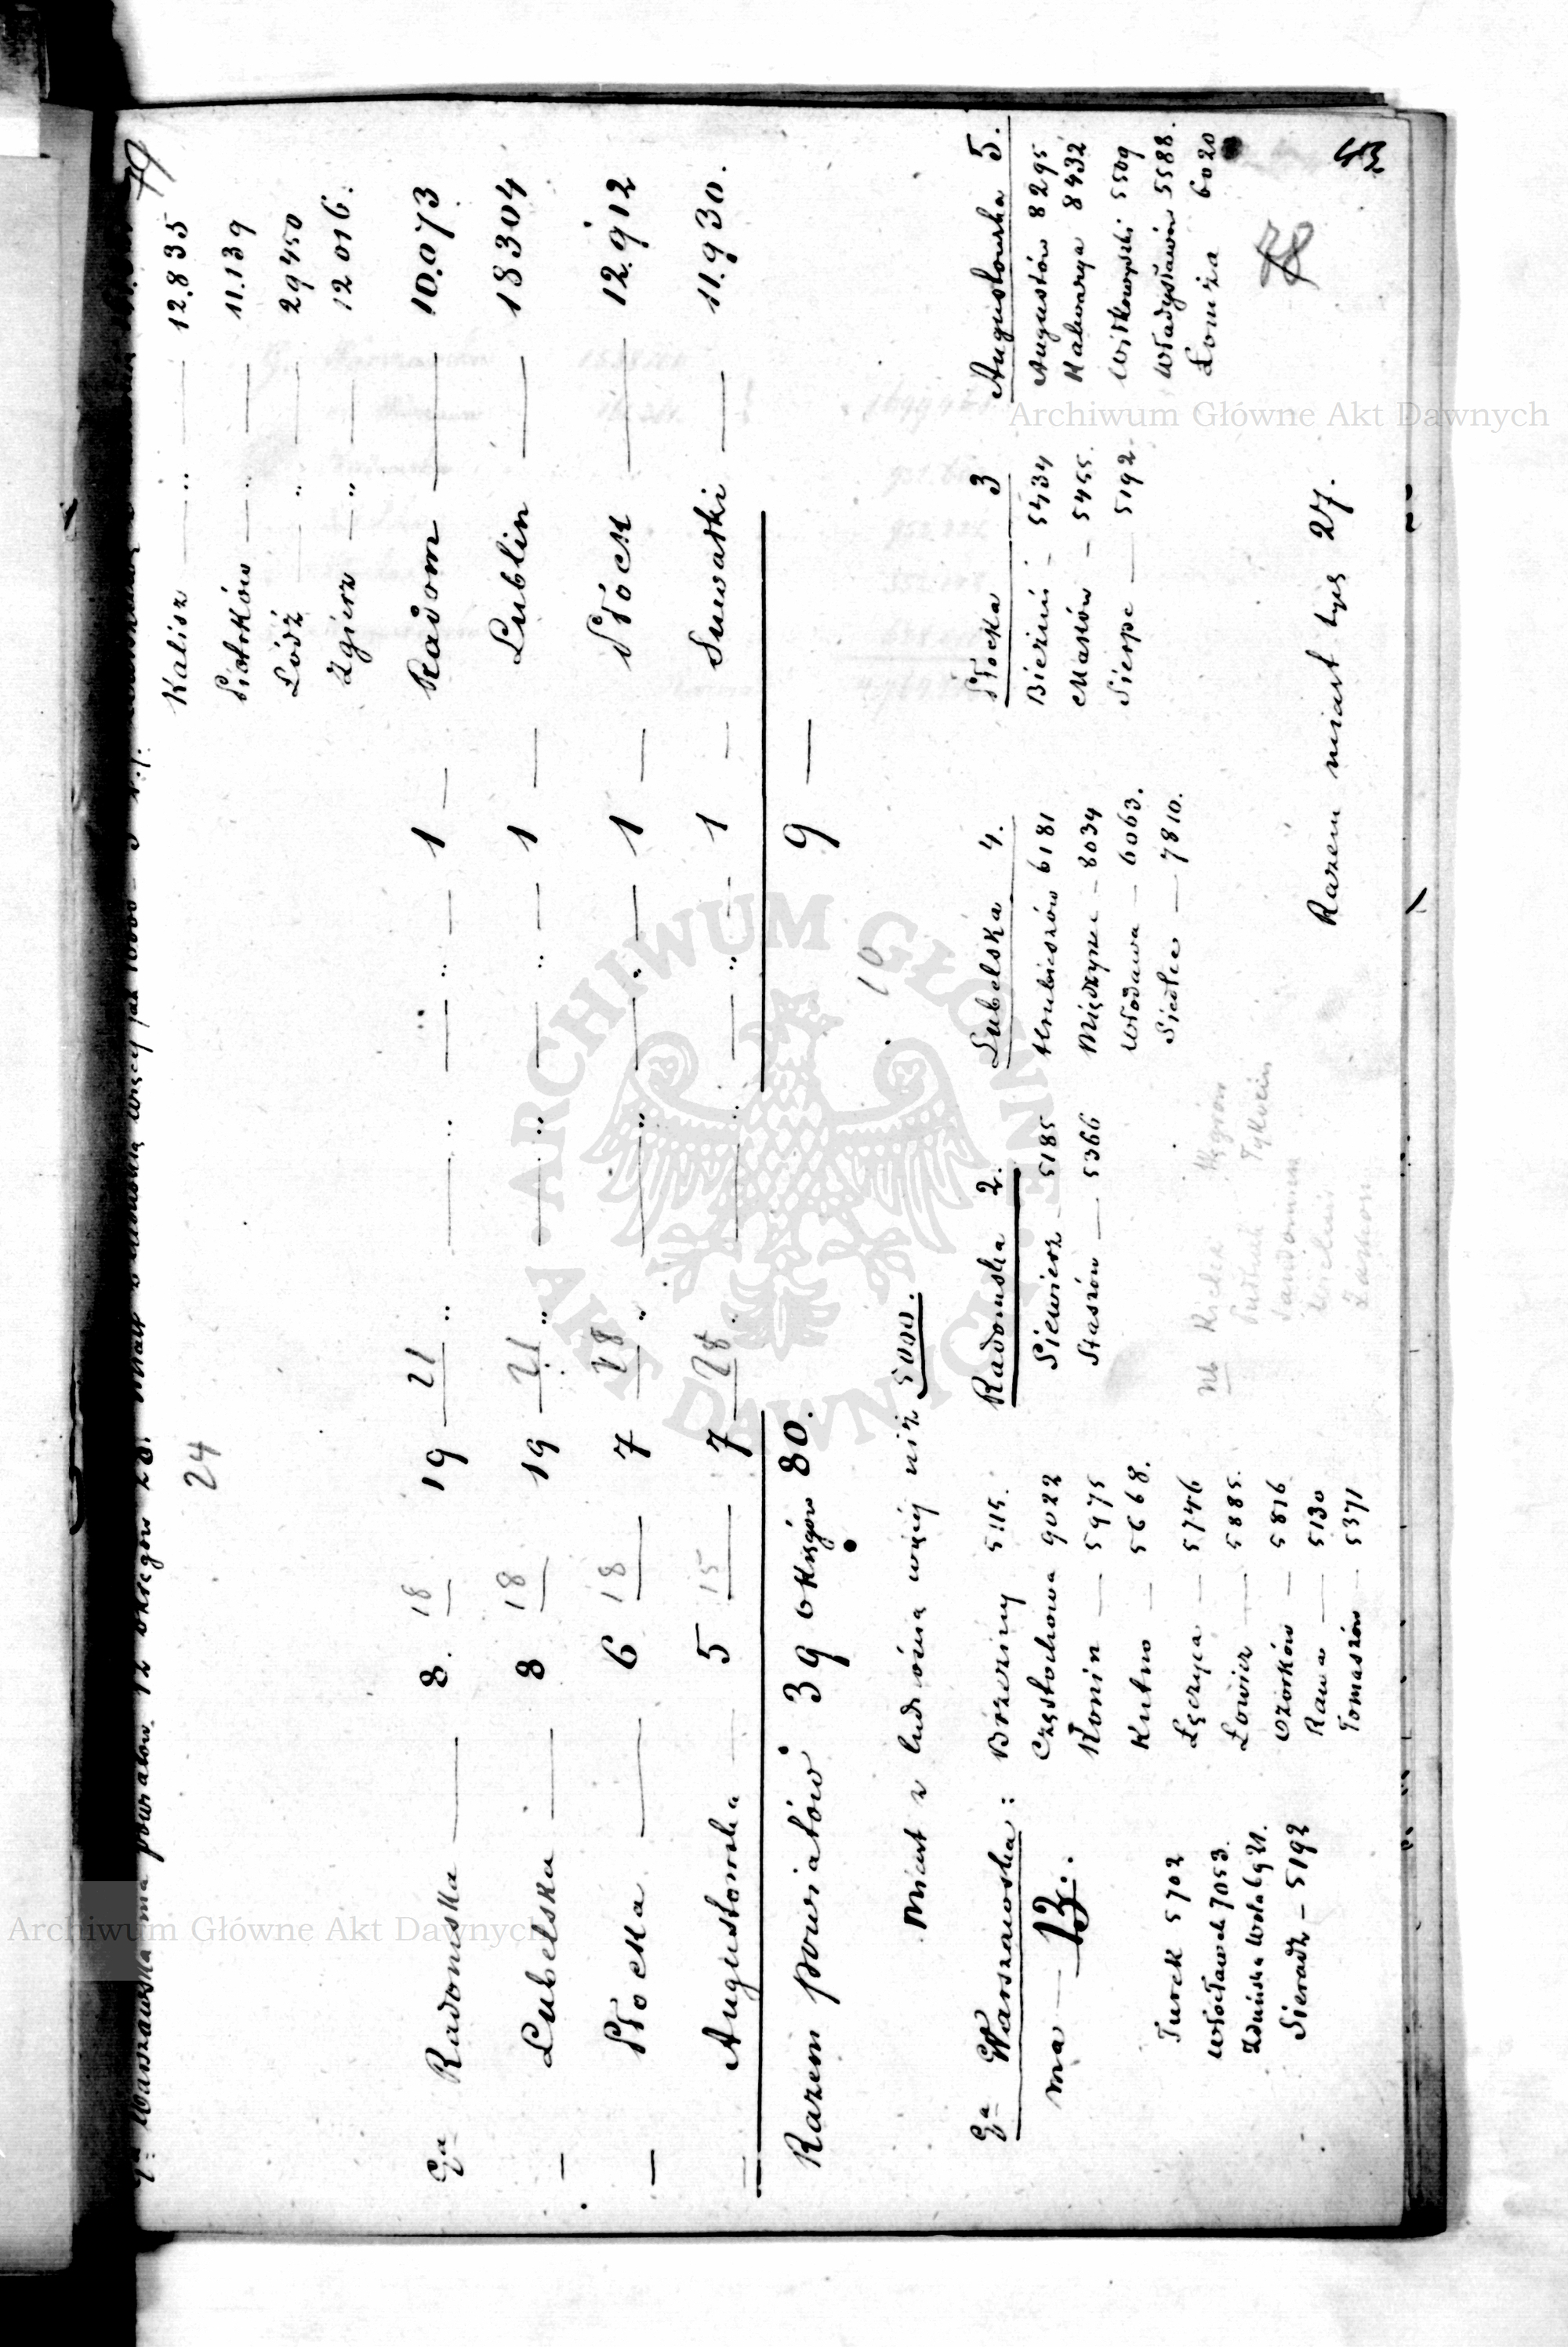 Gᵃ Warszawska ma powiatów 12 okręgów 28. Miast z ludnością więcej jak 10000 – 5
79
24
Kalisz — " — 12.835
Piotrków — " — 11.139
Łódź — " — 29450
Zgierz — " — 12016.
Gᵃ Radomska — 8. 18 19 21 " — " — " — 1 — Radom — 10.073
— Lubelska — 8 18 19 21 " — " — " — 1 — Lublin — 18304
— Płocka — 6 18 7 28 " — " — " — 1 — Płock — 12.912
— Augustowska — 5 15 7 28 " — " — " — 1 — Suwałki — 11.930.
Razem powiatów 39 okręgów 80. 9 —
10
Miast z ludnością więcej niż 5000.
Gᵃ Warszawska:
ma — 13.
Brzeziny 5115.
Częstochowa 9022
Konin — 5975
Kutno — 5668.
Łęczyca — 5746
Łowicz — 5885.
Ozorków — 5816
Rawa — 5130
Tomaszów — 5371
Turek 5702
Włocławek 7053.
Zduńska Wola 6921.
Sieradz – 5192
Radomska 2.
Siewierz — 5185
Staszów — 5366
Nb Kielce Węgrów
Pułtusk Tykocin
Sandomierz
Wieluń
Lubelska 4.
Hrubieszów 6181
Międzyrzec – 8034
Włodawa – 6063.
Siedlce — 7810.
Płocka 3
Bieżuń – 5434
Maków – 5455.
Sierpc — 5192
Augustowska 5.
Augustów 8295
Kalwarya 8432
Wiłkowyszki 5509
Władysławów 5588.
Łomża 6020
Razem miast tych 27.
78
43
Archiwum Główne Akt Dawnych
Archiwum Główne Akt Dawnych
ARCHIWUM GŁÓWNE AKT DAWNYCH